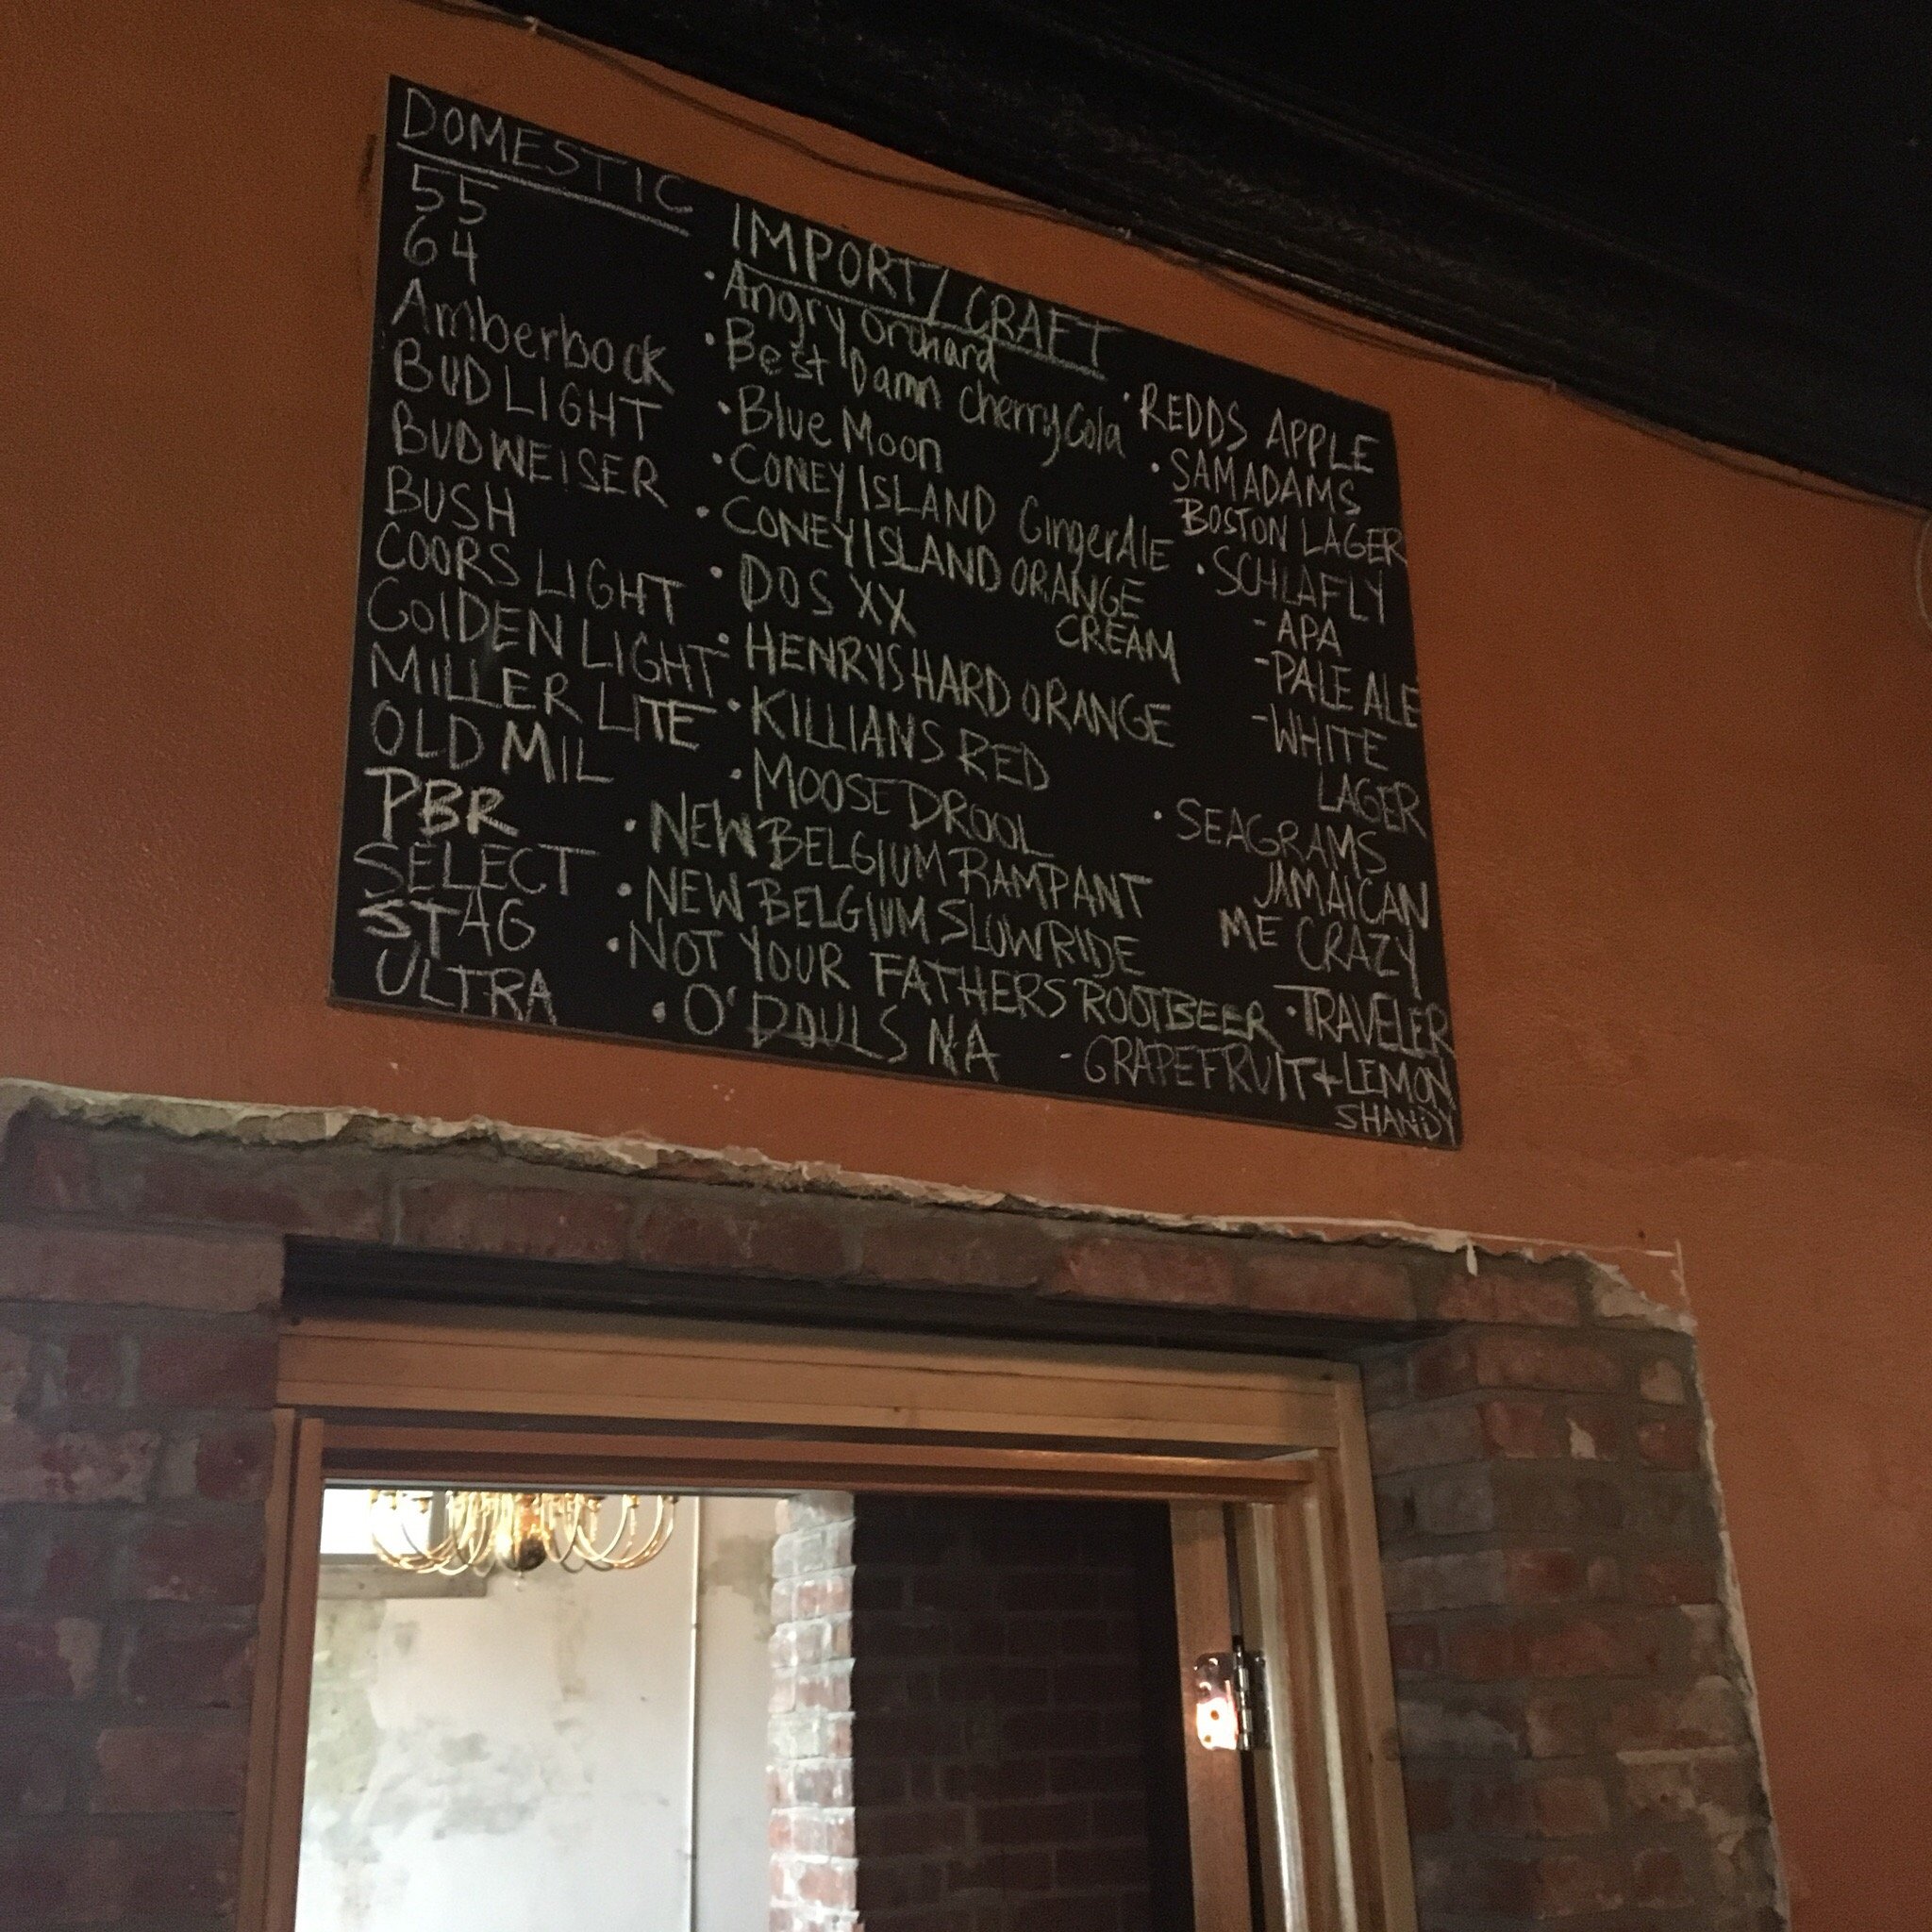 DOMESTIC
55
64
Amberbock
BUD LIGHT
BUDWEISER
BUSH
COORS LIGHT
GOlDEN LIGHT
MILLER LITE
OLD MIL
PBR
SELECT
STAG
ULTRA
IMPORT/CRAFT
• Angry Orchard
• Best Damn Cherry Cola
• Blue Moon
• CONEY ISLAND GingerAlE
• CONEY ISLAND ORANGE
CREAM
• DOS XX
• HENRYS HARD ORANGE
• KILLIANS RED
• MOOSE DROOL
• NEW BELGIUM RAMPANT
• NEW BELGIUM SLOW RIDE
• NOT YOUR FATHERS ROOTBEER
• O'DOULS NA
• REDDS APPLE
• SAM ADAMS
BOSTON LAGER
• SCHLAFLY
- APA
- PALE ALE
- WHITE
LAGER
• SEAGRAMS
JAMAICAN
ME CRAZY
• TRAVELER
- GRAPEFRUIT + LEMON
SHANDY